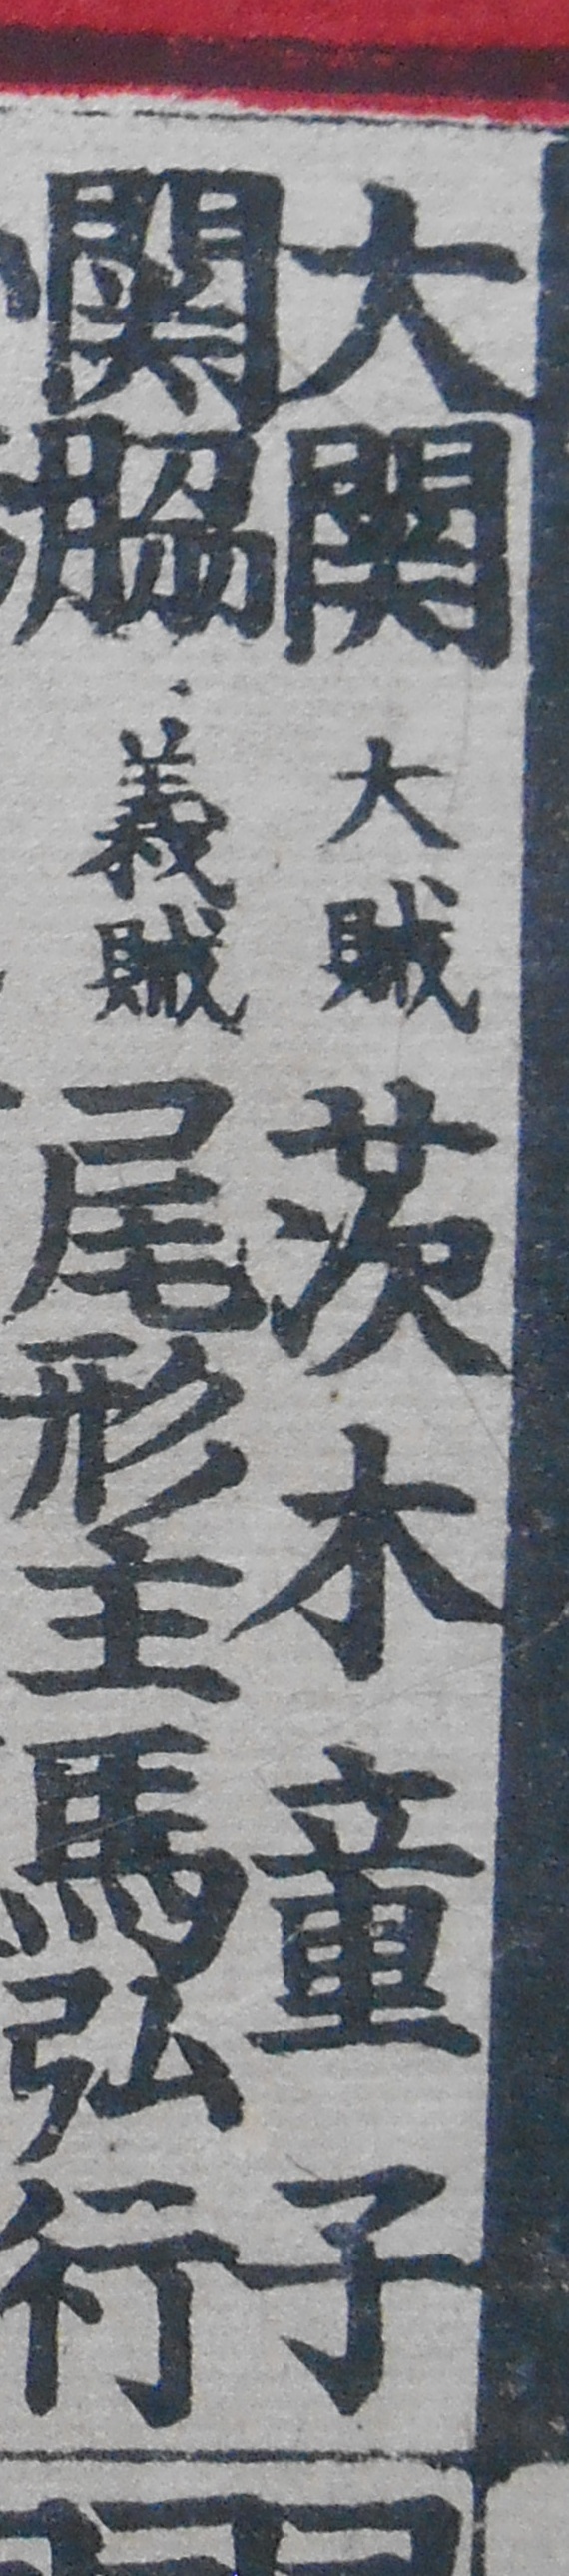 大関 大賊 茨木童子
関脇 義賊 尾形主馬弘行